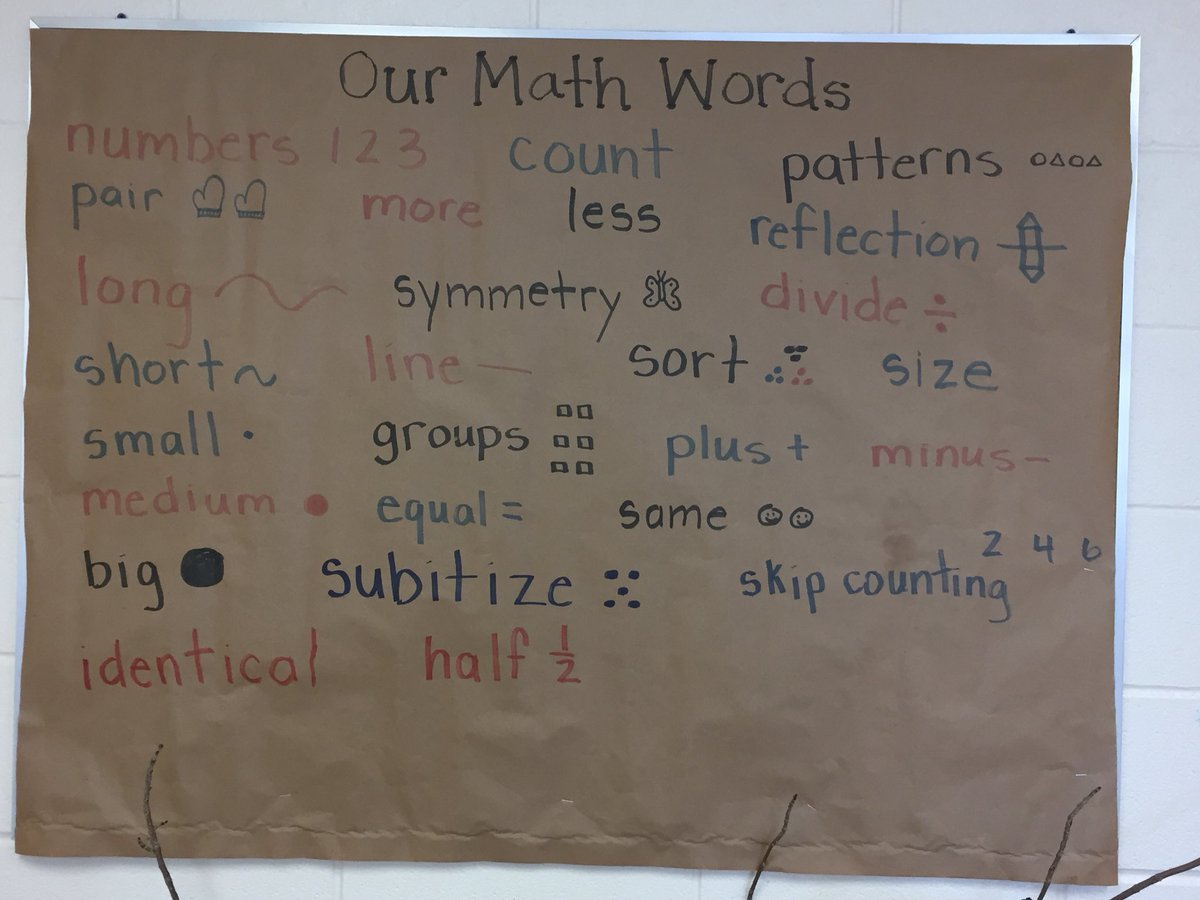 Our Math Words
numbers 1 2 3 count patterns
pair more less reflection
long symmetry divide ÷
short line sort size
small groups plus + minus -
medium equal = same
2 4 6
big subitize skip counting
identical half 1/2